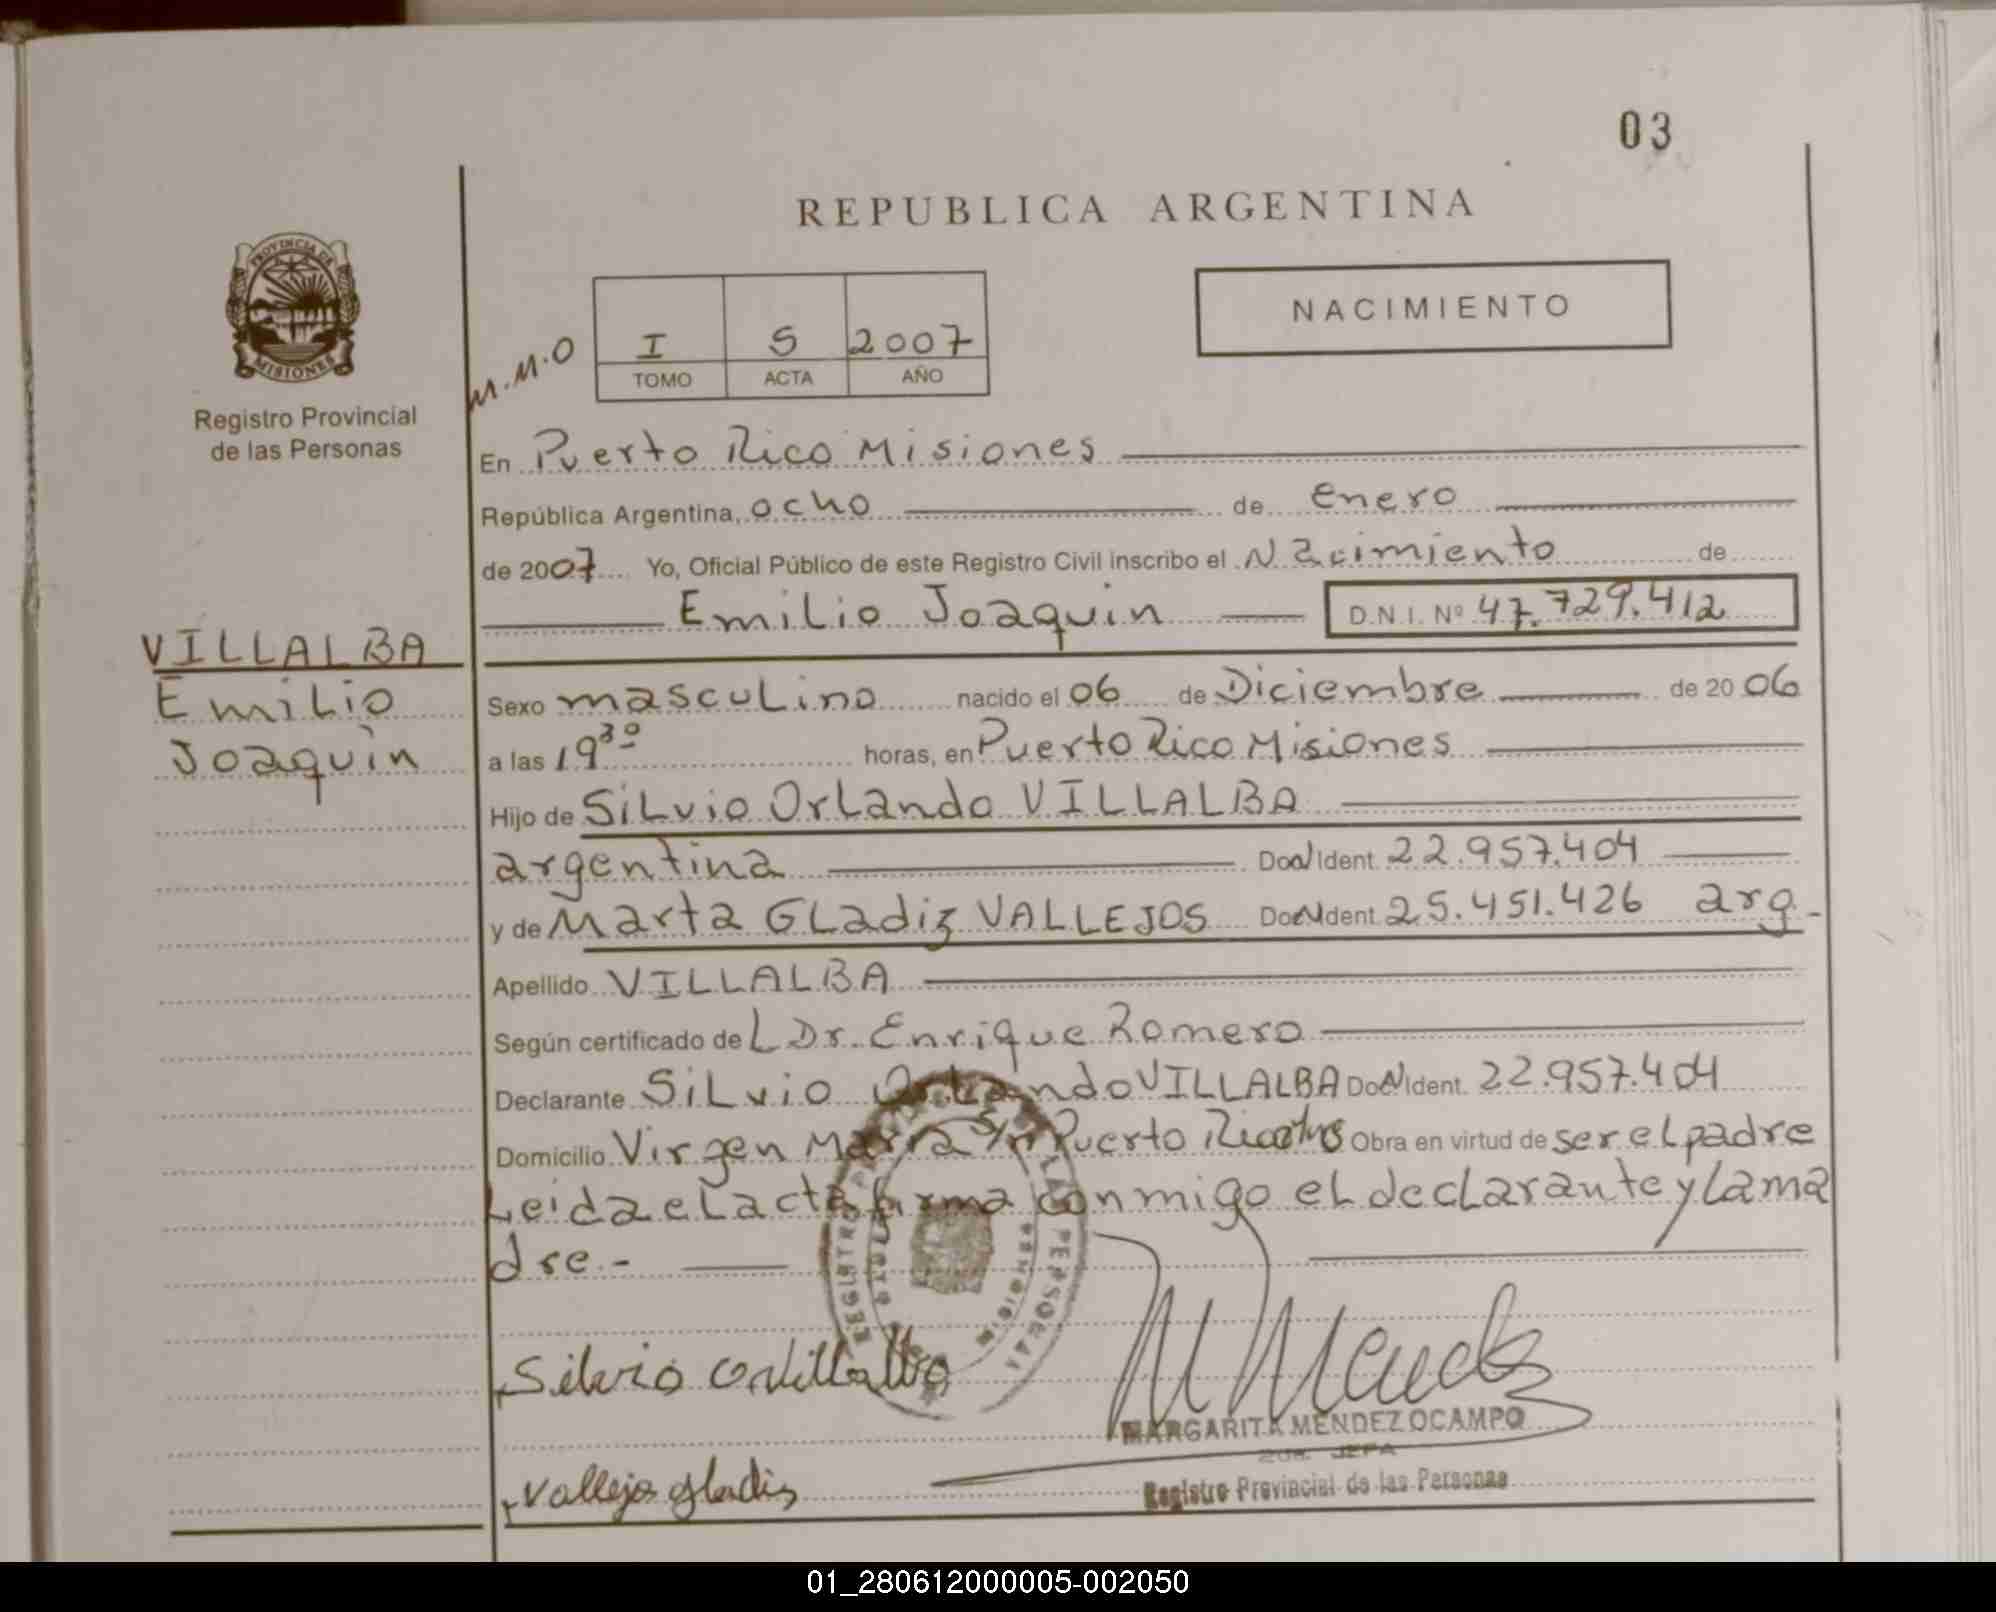 03
REPUBLICA ARGENTINA
PROVINCIA DE
MISIONES
Registro Provincial
de las Personas
M.M.O
I 5 2007
TOMO ACTA AÑO
NACIMIENTO
En Puerto Rico Misiones
República Argentina, ocho de enero
de 2007 Yo, Oficial Público de este Registro Civil inscribo el Nacimiento de
Emilio Joaquin D.N.I. Nº 47.729.412
VILLALBA
Emilio
Joaquin
Sexo masculino nacido el 06 de Diciembre de 2006
a las 19 30 horas, en Puerto Rico Misiones
Hijo de Silvio Orlando VILLALBA
argentina Ident. 22.957.404
y de Marta Gladiz VALLEJOS Ident. 25.451.426 arg.-
Apellido VILLALBA
Según certificado del Dr. Enrique Romero
Declarante Silvio Orlando VILLALBA Ident. 22.957.404
Domicilio Virgen Maria S/n Puerto Rico Obra en virtud de ser el padre
Leida el acta firma conmigo el declarante y la ma
dre.-
Silvio O Villalba
M Mendez
MARGARITA MENDEZ OCAMPO
JEFA
Registro Provincial de las Personas
Vallejos gladis
01_280612000005-002050